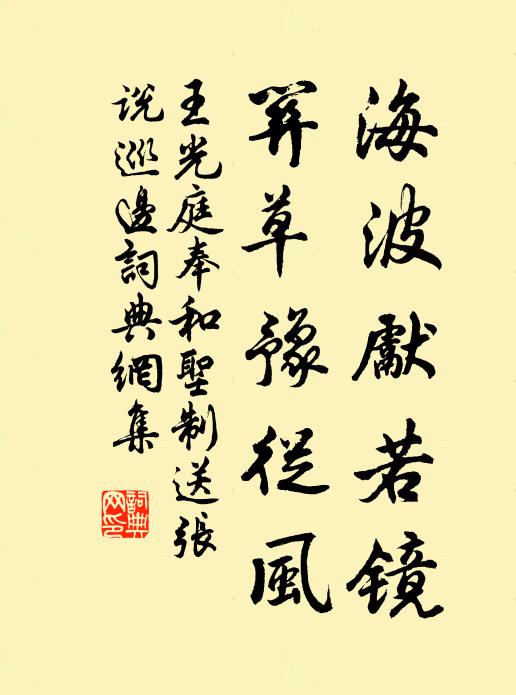 海波獻若鏡
草豫從風
王光庭奉和聖制送張
說巡邊詞典網集
詞典
网印